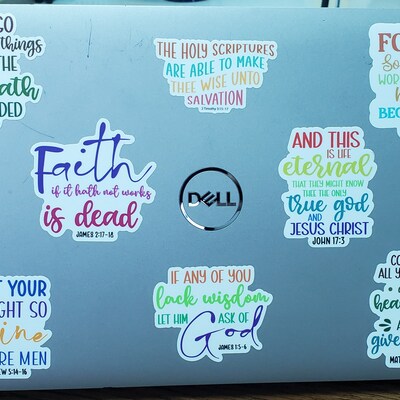 GO
things
THE
THE HOLY SCRIPTURES
ARE ABLE TO MAKE
THEE WISE UNTO
SALVATION
FO
So
WOR
BEC
Faith
if it hath not works
is dead
JAMES 2:17-18
DELL
AND THIS
IS LIFE
eternal
THAT THEY MIGHT KNOW
THEE THE ONLY
true god
AND
JESUS CHRIST
JOHN 17:3
T YOUR
GHT SO
ine
RE MEN
EW 5:14-16
IF ANY OF YOU
lack wisdom
LET HIM ASK OF
God
JAMES 1:5-6
CO
ALL Y
hea
A
give
MAT